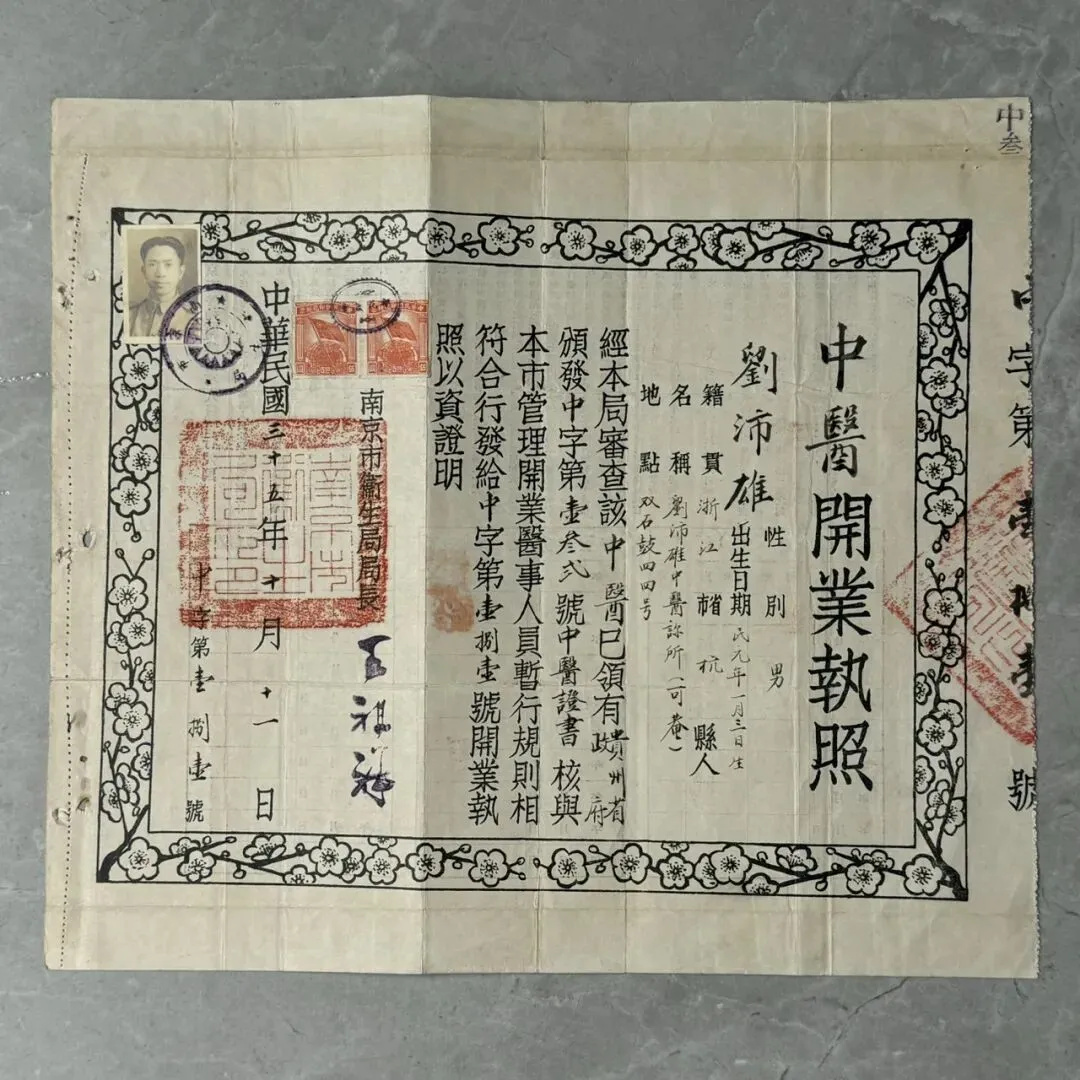 中叁
中字第壹捌壹號
中醫開業執照
性別 男
劉沛雄 出生日期 民元年一月三日生
籍貫 浙江省市杭縣人
名稱 劉沛雄中醫診所(可菴)
地點 双石鼓四四号
經本局審查該中醫已領有貴州省政府
頒發中字第壹叁弍號中醫證書核與
本市管理開業醫事人員暫行規則相
符合行發給中字第壹捌壹號開業執
照以資證明
南京市衛生局局長 王祖祥
中華民國三十五年十月十一日
中字第壹捌壹號